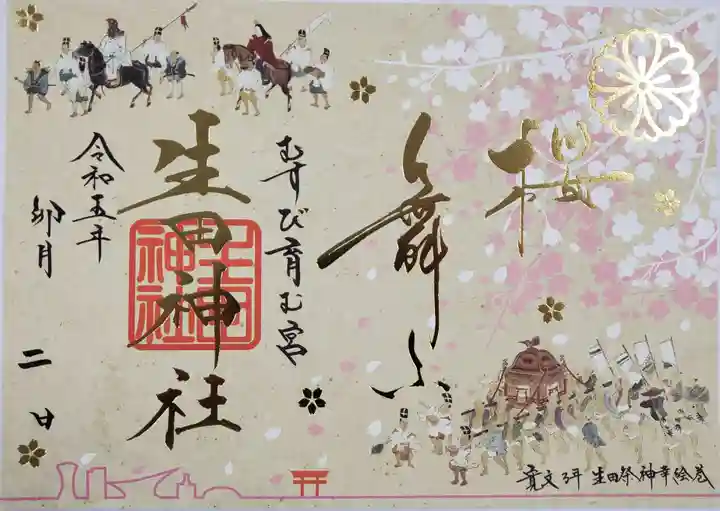 櫻
舞ふ
むすび育む宮
生田神社
生田神社
令和五年
卯月
二日
寛文3年 生田祭神幸絵巻